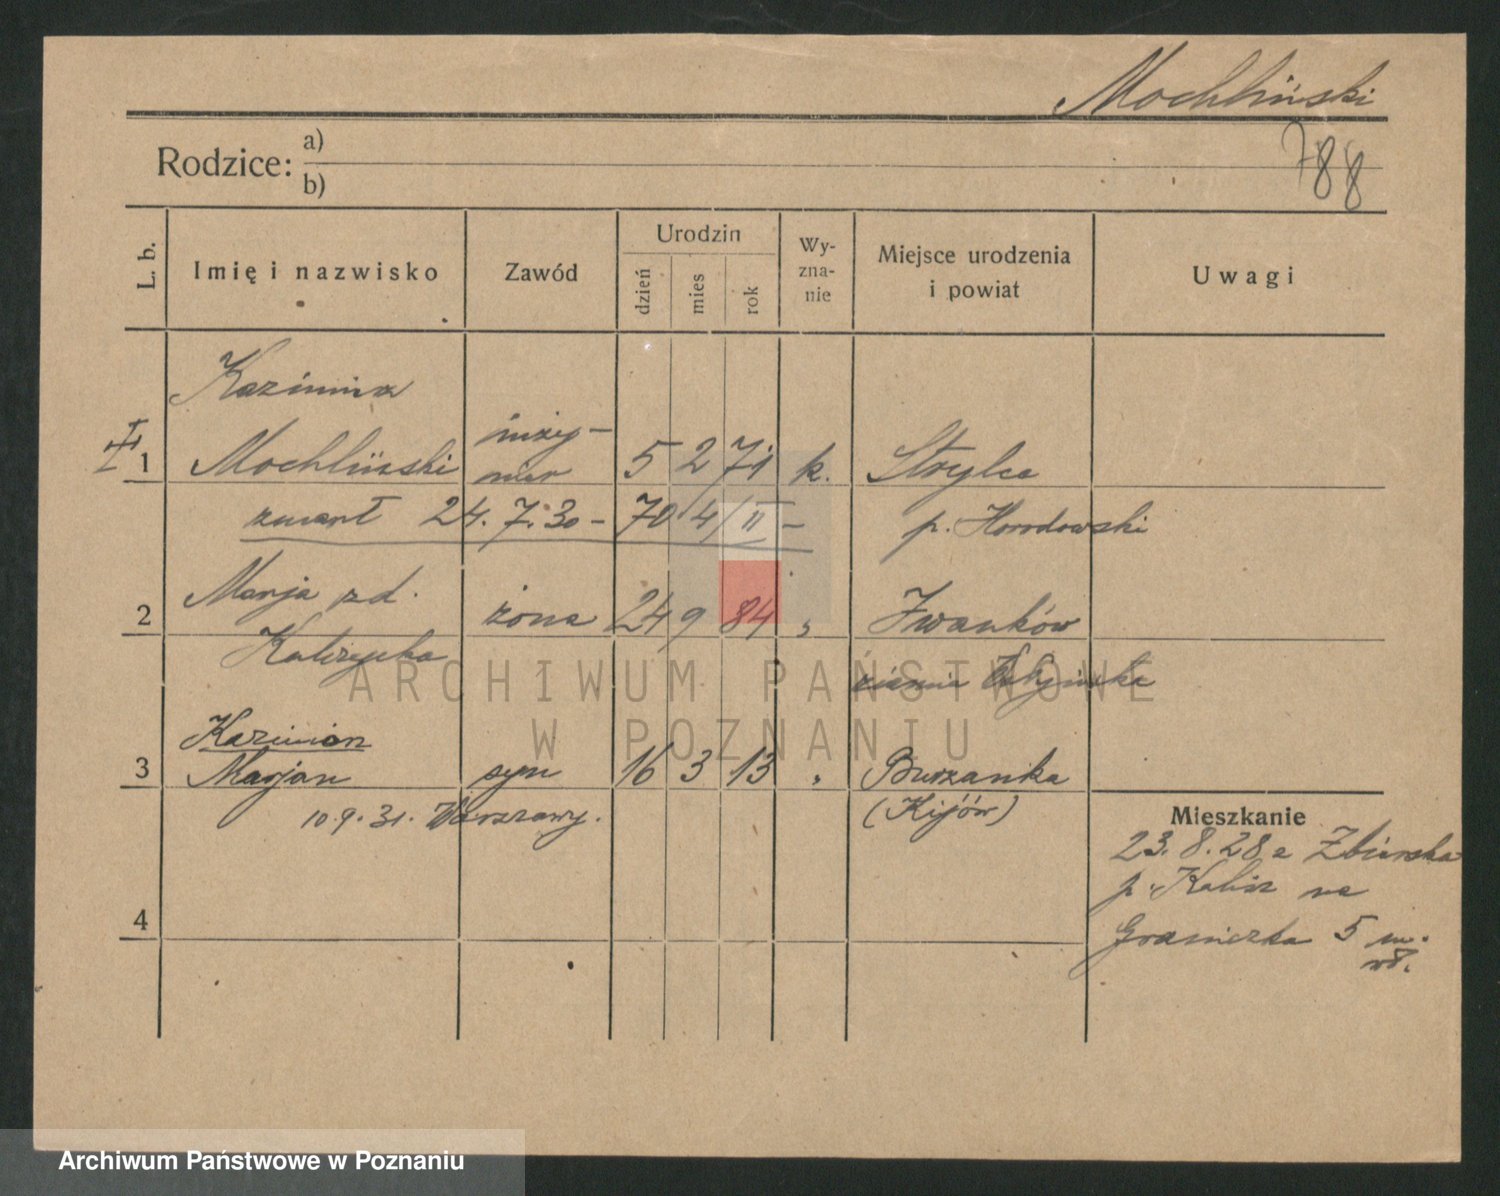 Mochliński
788
Rodzice:
a)
b)
L. b.
Imię i nazwisko
Zawód
Urodzin
dzień
mies
rok
Wy-
zna-
nie
Miejsce urodzenia
i powiat
Uwagi
Kazimierz
1 Mochliński inży-
nier 5 2 71 k. Strylce
zmarł 24. 7. 30 - 704/II - p. Horodowski
2 Marja zd. żona 24 9 84 " Iwanków
ziemia
3 Kazimierz
Marjan syn 16 3 13 " Burzanka
10.9.31. Warszawy. (Kijów)
4
Mieszkanie
23. 8. 28 z Zbierska
p. Kalisz na
Graniczka 5 m.
ARCHIWUM PAŃSTWOWE
W POZNANIU
Archiwum Państwowe w Poznaniu